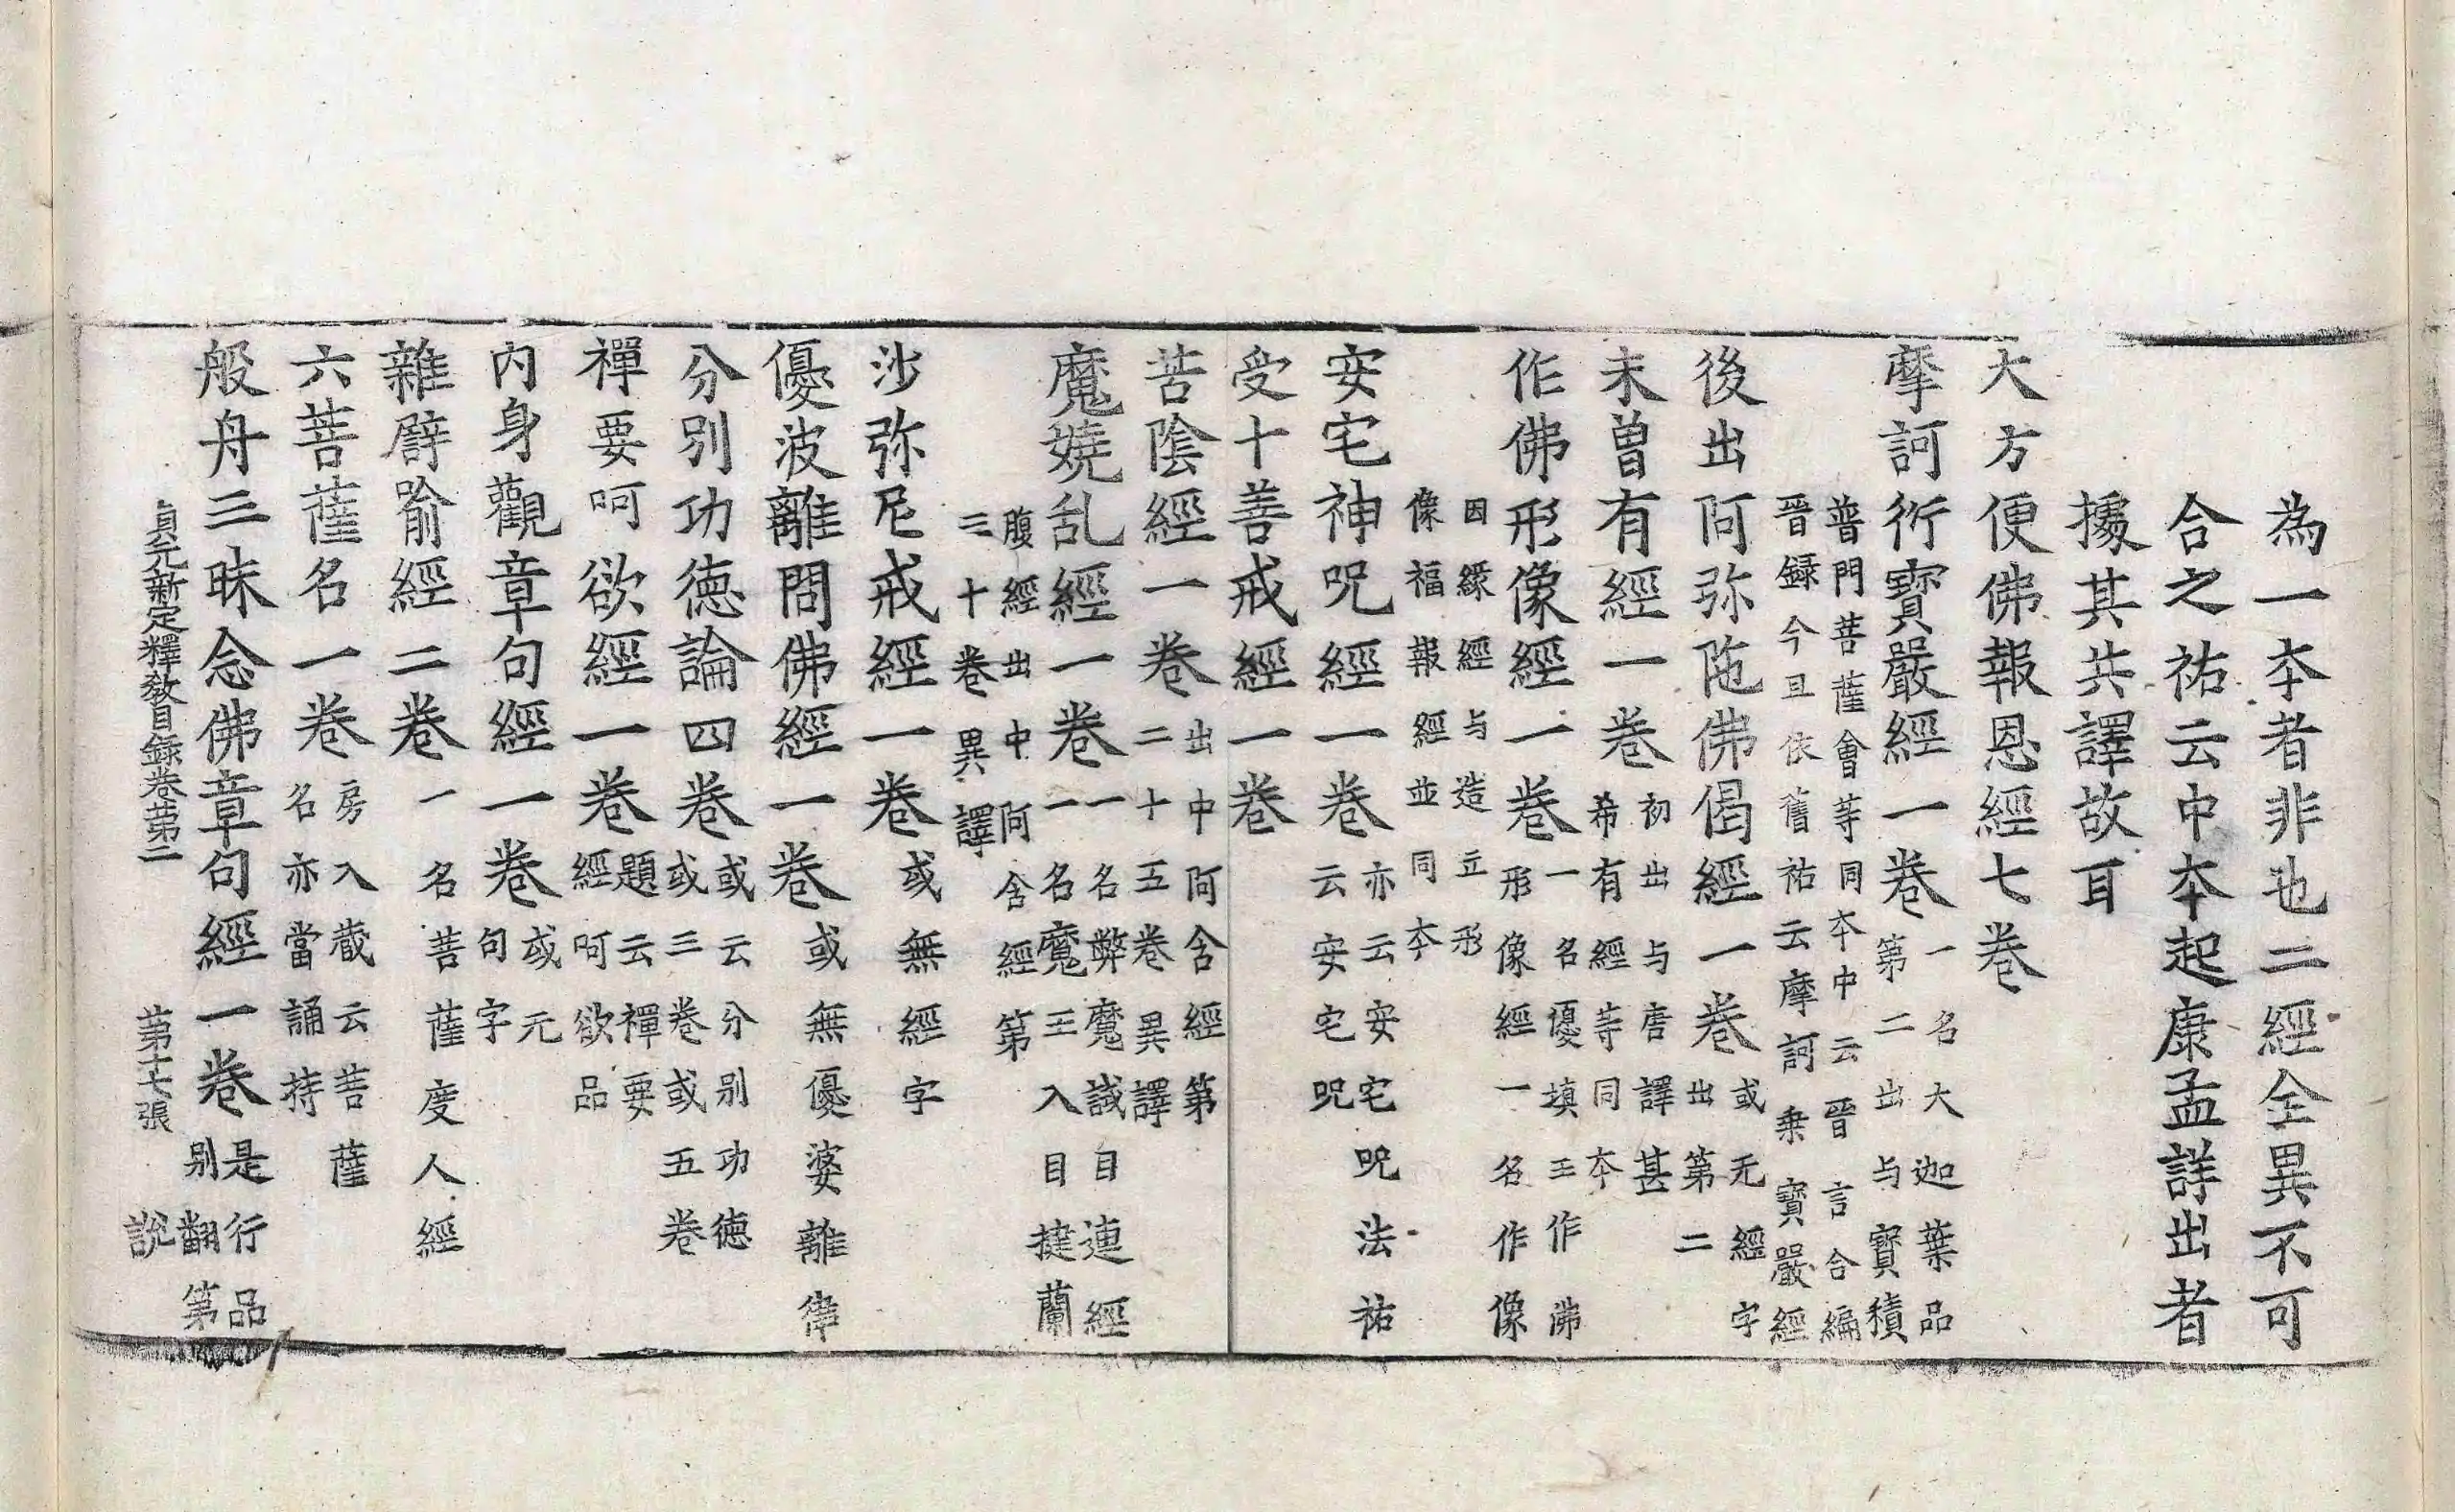 為一夲者非也二經全異不可
合之祐云中夲起康孟詳出者
據其共譯故耳
大方便佛報恩經七卷
摩訶衍寶嚴經一卷
一名大迦葉品
第二出与寶積
普門菩薩會等同夲中云晉言合編
晉録今且依舊祐云摩訶乗寶嚴經
後出阿弥陁佛偈經一卷
或无經字
出第二
未曽有經一卷
初出与唐譯甚
希有經等同夲
作佛形像經一卷
一名優填王作佛
形像經一名作像
因緣經与造立形
像福報經並同夲
安宅神呪經一卷
亦云安宅呪法祐
云安宅呪
受十善戒經一卷
苦陰經一卷
出中阿含經第
二十五卷異譯
魔嬈乱經一卷
一名弊魔試目連經
一名魔王入目揵蘭
腹經出中阿含經第
三十卷異譯
沙弥尼戒經一卷
或無經字
優波離問佛經一卷
或無優婆離律
分別功德論四卷
或云分别功德
或三卷或五卷
禪要呵欲經一卷
題云禪要
經呵欲品
內身觀章句經一卷
或元
句字
雜譬喻經二卷
一名菩薩度人經
六菩薩名一卷
房入蔵云菩薩
名亦當誦持
般舟三昧念佛章句經一卷
是行品
别翻第
說
貞元新定釋教目録卷苐二
苐十七張